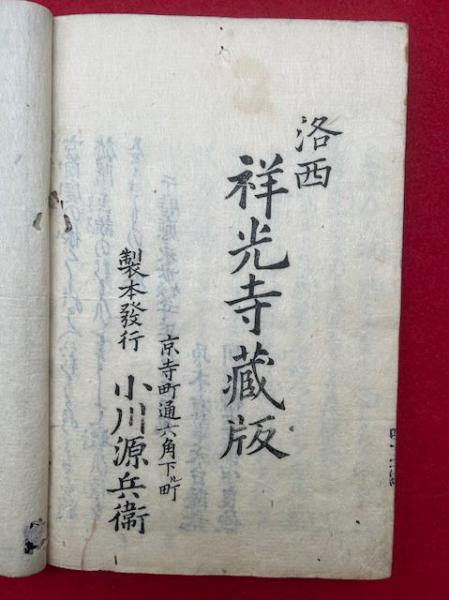 洛西
祥光寺藏版
京寺町通六角下ル町
製本發行 小川源兵衛